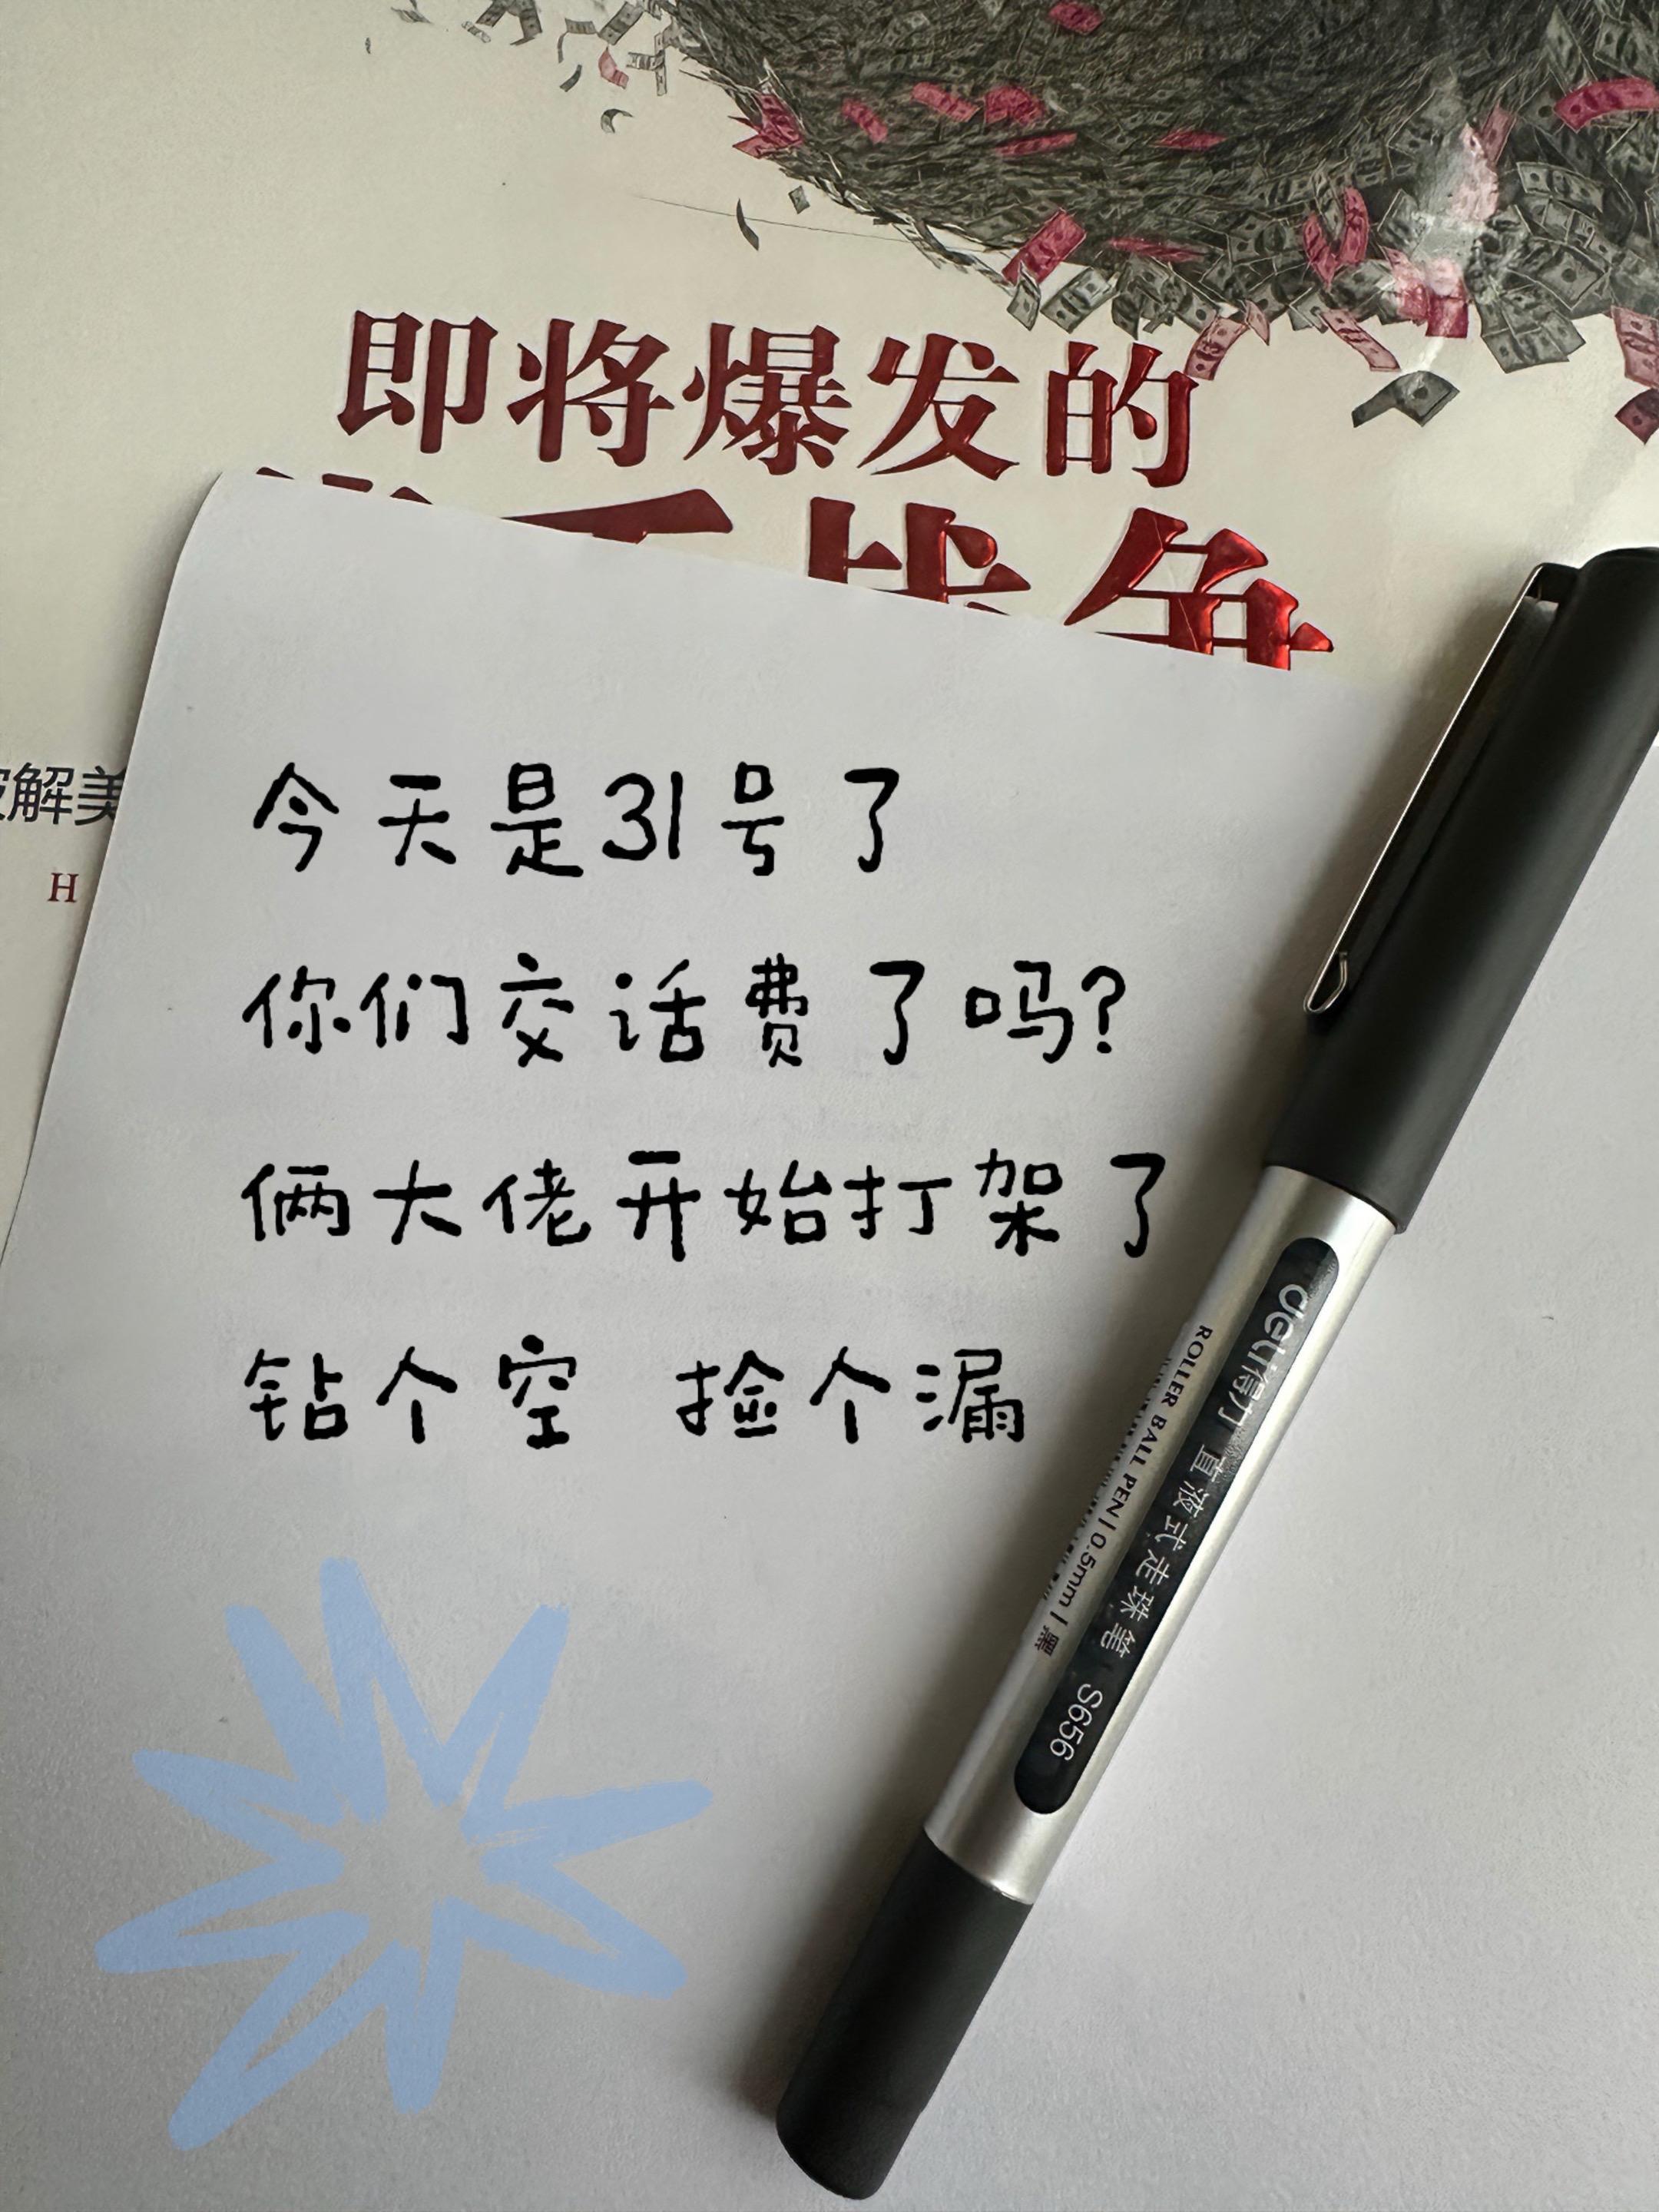 即将爆发的
破解美
H
今天是31号了
你们交话费了吗?
俩大佬开始打架了
钻个空 捡个漏
deli得力 直液式走珠笔 S656
ROLLER BALL PEN | 0.5mm | 黑